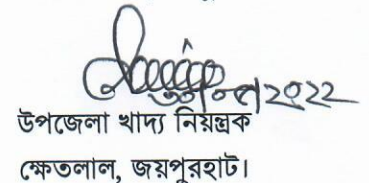 ২০২২
উপজেলা খাদ্য নিয়ন্ত্রক
ক্ষেতলাল, জয়পুরহাট।